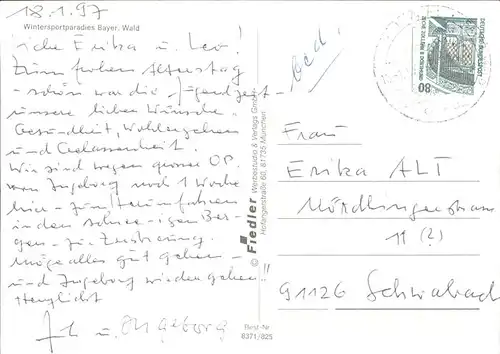 18.1.97
Wintersportparadies Bayer. Wald
Erika u. Leo!
Zum frohen Alterstag
- schön war die Jugendzeit -
unsere lieben Wünsche.
Gesundheit, Wohlergehen
und Gelassenheit.
Wir sind wegen grosser OP.
von Ingeborg noch 1 Woche
hier -
in den schnee-igen Ber-
gen -
Möge alles gut gehen -
und Ingeborg wieder gehen!!
Herzlichst
u. Ingeborg
© Fiedler Werbestudio & Verlags GmbH
Hofangerstraße 60, 81735 München
Best-Nr.
8371/825
DEUTSCHE BUNDESPOST
80
Frau
Erika ALT
Nördlingerstrasse
11 (?)
91126 Schwabach